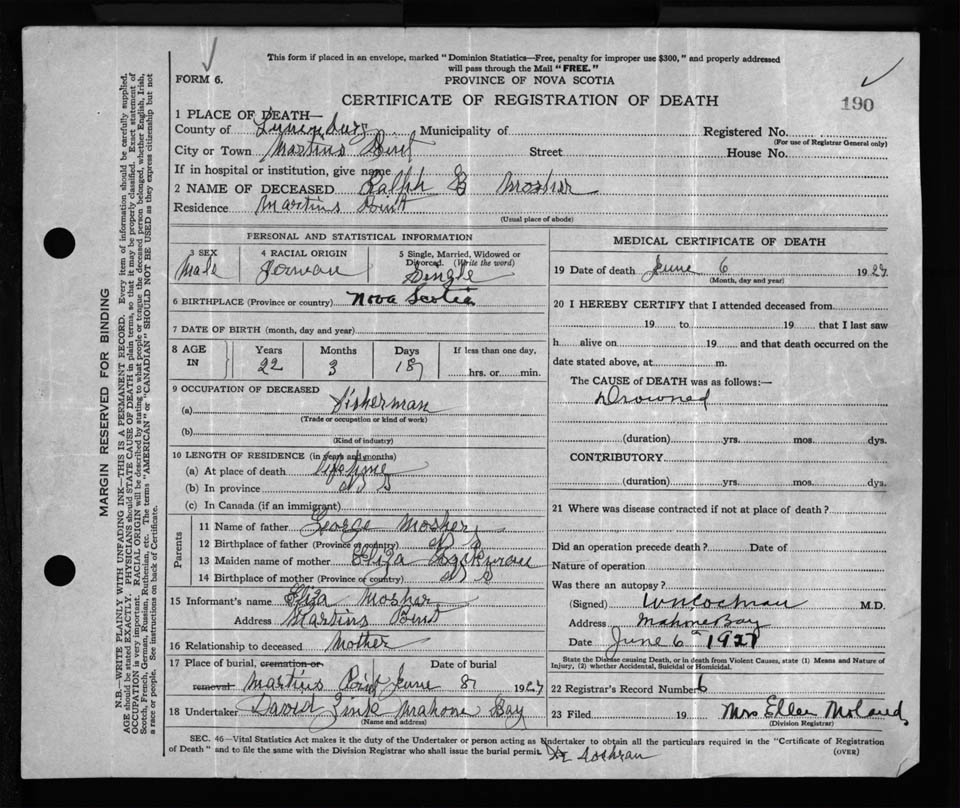 This form if placed in an envelope, marked "Dominion Statistics—Free, penalty for improper use $300," and properly addressed
will pass through the Mail "FREE."
FORM 6.
PROVINCE OF NOVA SCOTIA
CERTIFICATE OF REGISTRATION OF DEATH
190
1 PLACE OF DEATH—
County of Lunenburg Municipality of Registered No.
(For use of Registrar General only)
City or Town Martins Point Street House No.
If in hospital or institution, give name
2 NAME OF DECEASED Ralph G Mosher
Residence Martins Point
(Usual place of abode)
PERSONAL AND STATISTICAL INFORMATION
3 SEX Male
4 RACIAL ORIGIN German
5 Single, Married, Widowed or Divorced. (Write the word) Single
6 BIRTHPLACE (Province or country) Nova Scotia
7 DATE OF BIRTH (month, day and year)
8 AGE IN Years Months Days If less than one day,
22 3 18 hrs. or min.
9 OCCUPATION OF DECEASED
(a) Fisherman
(Trade or occupation or kind of work)
(b)
(Kind of industry)
10 LENGTH OF RESIDENCE (in years and months)
(a) At place of death lifetime
(b) In province N S
(c) In Canada (if an immigrant)
Parents
11 Name of father George Mosher
12 Birthplace of father (Province or country) N S
13 Maiden name of mother Eliza
14 Birthplace of mother (Province or country) N S
15 Informant's name Eliza Mosher
Address Martins Point
16 Relationship to deceased Mother
17 Place of burial, cremation or removal Martins Point Date of burial June 8 1927
18 Undertaker David Zink Mahone Bay
(Name and address)
MEDICAL CERTIFICATE OF DEATH
19 Date of death June 6 1927
(Month, day and year)
20 I HEREBY CERTIFY that I attended deceased from
19 to 19 that I last saw
h alive on 19 and that death occurred on the
date stated above, at m.
The CAUSE of DEATH was as follows:—
Drowned
(duration) yrs. mos. dys.
CONTRIBUTORY
(duration) yrs. mos. dys.
21 Where was disease contracted if not at place of death?
Did an operation precede death? Date of
Nature of operation
Was there an autopsy?
(Signed) W N Cochran M.D.
Address Mahone Bay
Date June 6 1927
State the Disease causing Death, or in death from Violent Causes, state (1) Means and Nature of
Injury, (2) whether Accidental, Suicidal or Homicidal.
22 Registrar's Record Number 6
23 Filed 19 Mrs Ellen
(Division Registrar)
SEC. 46—Vital Statistics Act makes it the duty of the Undertaker or person acting as Undertaker to obtain all the particulars required in the "Certificate of Registration
of Death" and to file the same with the Division Registrar who shall issue the burial permit. (OVER)
Dr Cochran
MARGIN RESERVED FOR BINDING
N.B.—WRITE PLAINLY WITH UNFADING INK—THIS IS A PERMANENT RECORD. Every item of information should be carefully supplied.
AGE should be stated EXACTLY. PHYSICIANS should STATE CAUSE OF DEATH in plain terms, so that it may be properly classified. Exact statement of
OCCUPATION is very important. RACIAL ORIGIN will be described by stating to what people or tongue the deceased person belonged, whether English, Irish,
Scotch, French, German, Russian, Ruthenian, etc. The terms "AMERICAN" or "CANADIAN" SHOULD NOT BE USED as they express citizenship but not
a race or people. See instructions on back of Certificate.